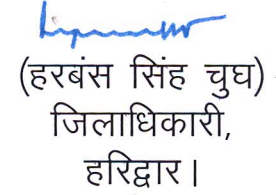 (हरबंस सिंह चुघ)
जिलाधिकारी,
हरिद्वार।